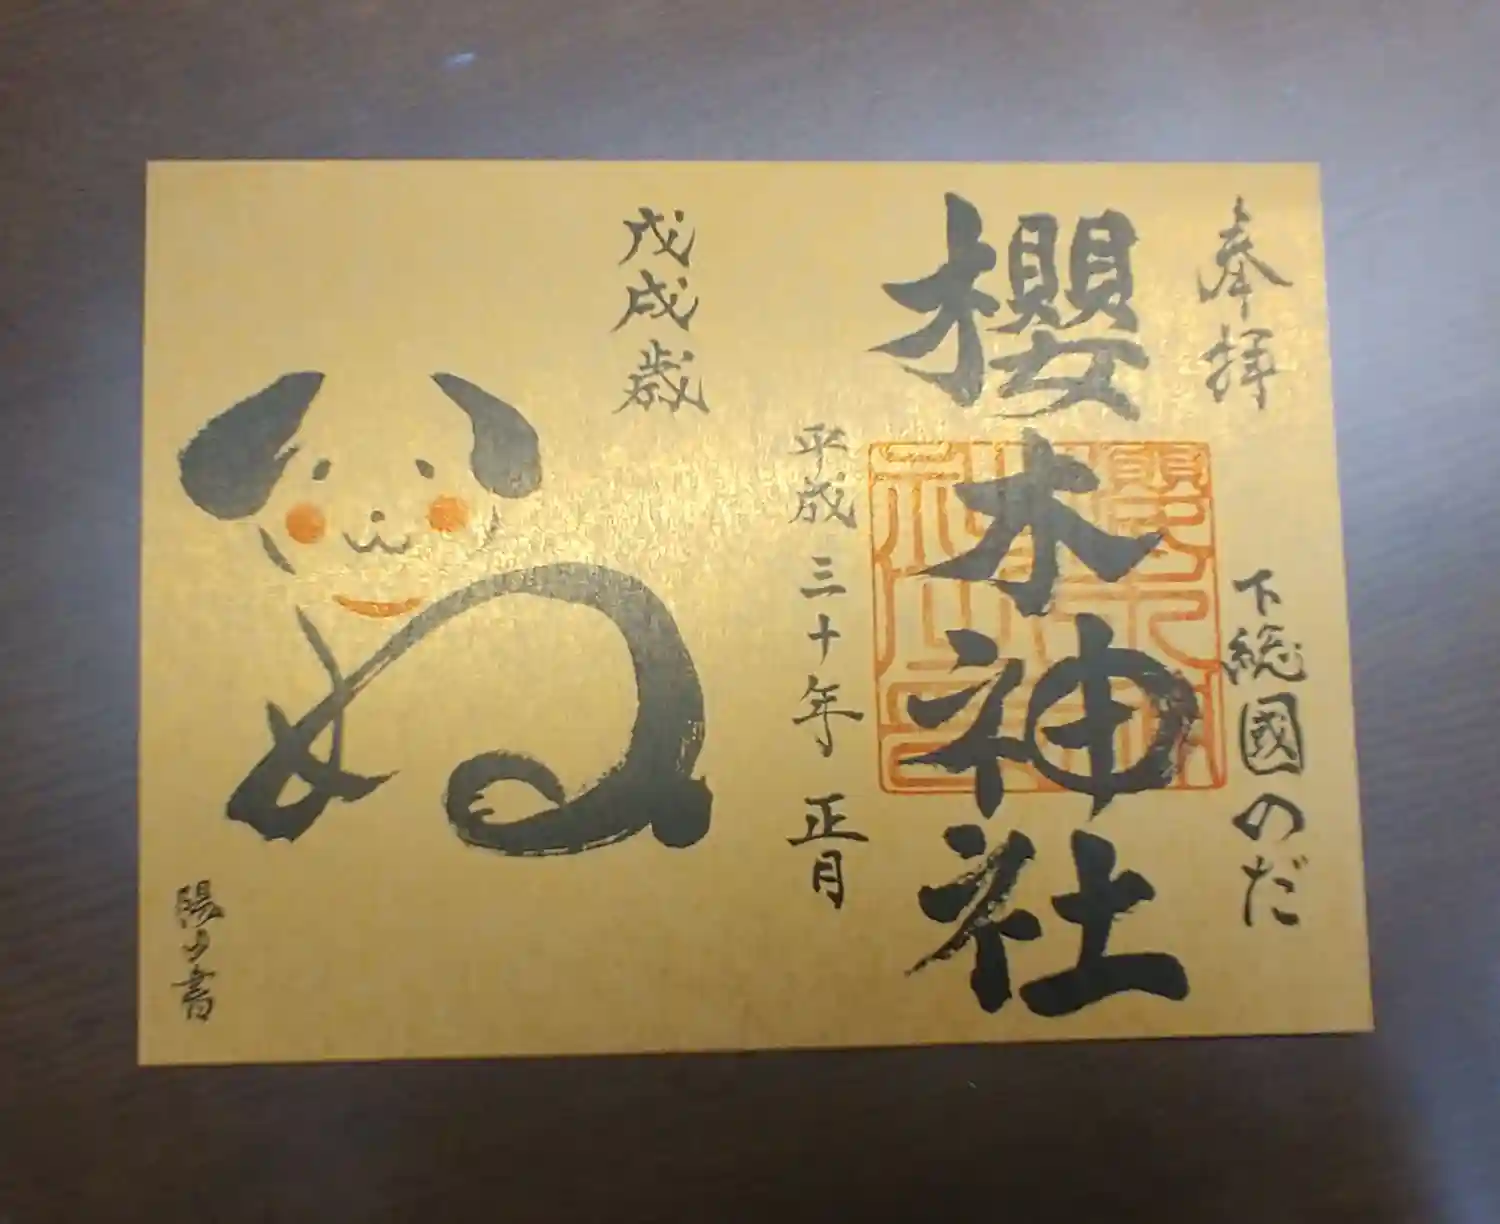 奉拝
下総國のだ
櫻木神社
平成三十年正月
戊戌歳
いぬ
陽山書